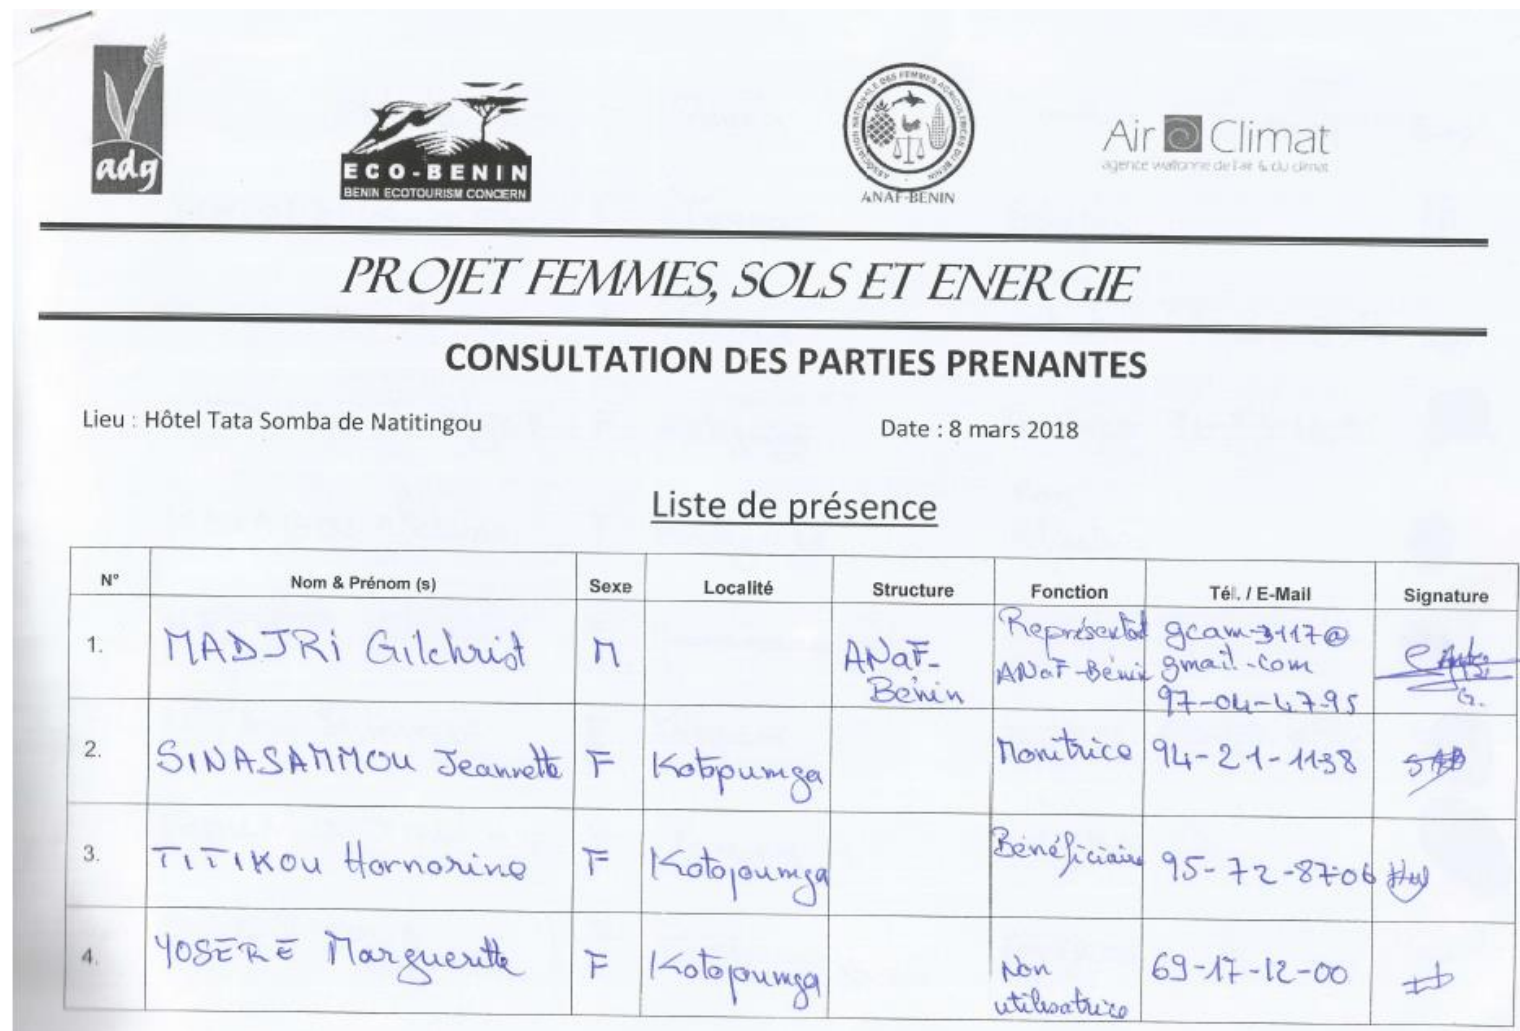 adg
ECO-BENIN
BENIN ECOTOURISM CONCERN
ASSOCIATION NATIONALE DES FEMMES AGRICULTRICES DU BENIN
ANAF-BENIN
Air Climat
agence wallonne de l'air & du climat
PROJET FEMMES, SOLS ET ENERGIE
CONSULTATION DES PARTIES PRENANTES
Lieu : Hôtel Tata Somba de Natitingou
Date : 8 mars 2018
Liste de présence
N° Nom & Prénom (s) Sexe Localité Structure Fonction Tél. / E-Mail Signature
1. MADJRi Gilchrist M ANaF-Bénin Représentant ANaF-Bénin gcam3117@gmail.com 97-04-47-95
2. SINASAMMOU Jeannette F Kotopumga Monitrice 94-21-1138
3. TITIKOU Hornorine F Kotopoumga Bénéficiaire 95-72-87-06
4. YOSERE Margueritte F Kotopoumga Non utilisatrice 69-17-12-00